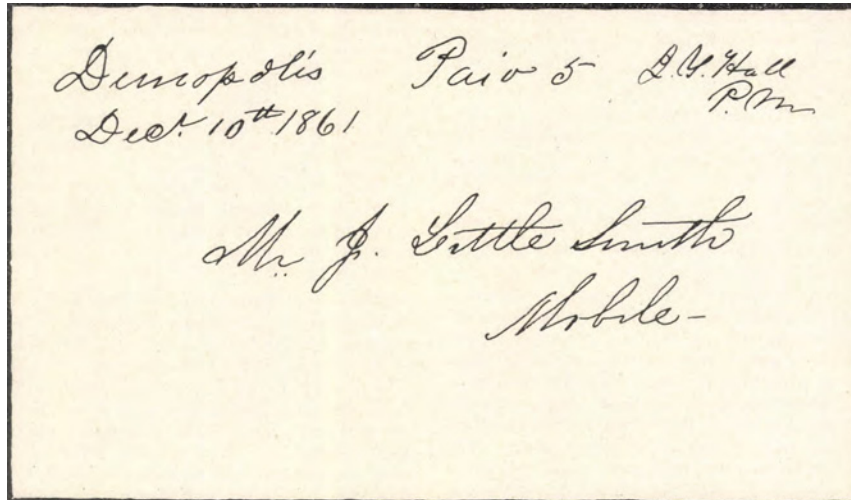 Demopolis Paid 5 J. Y. Hall
Decr. 10th 1861 P. M.
Mr. J. Little Smith
Mobile-